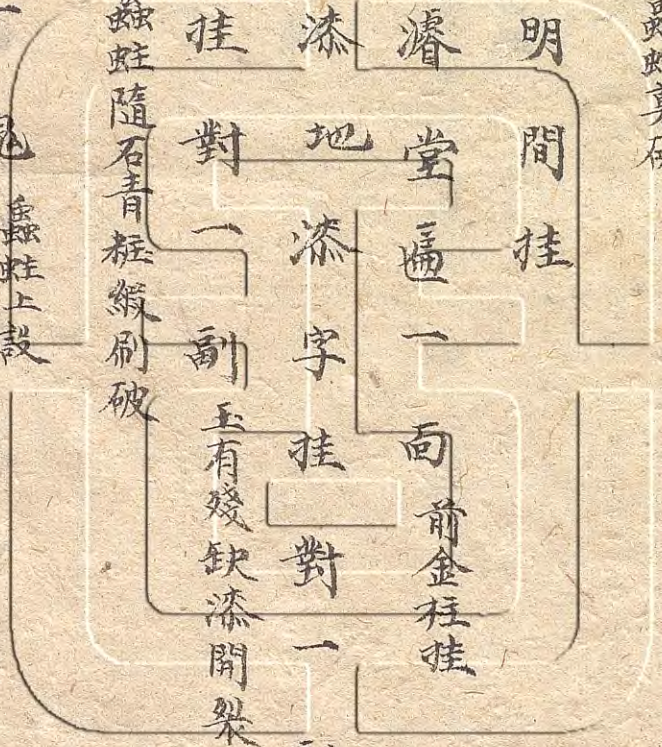 蟲蛀
明間挂
濬堂匾一面前金柱挂
漆地漆字挂對一
挂對一副玉有殘缺漆開裂
蟲蛀隨石青紅緞刷破
蟲蛀上設